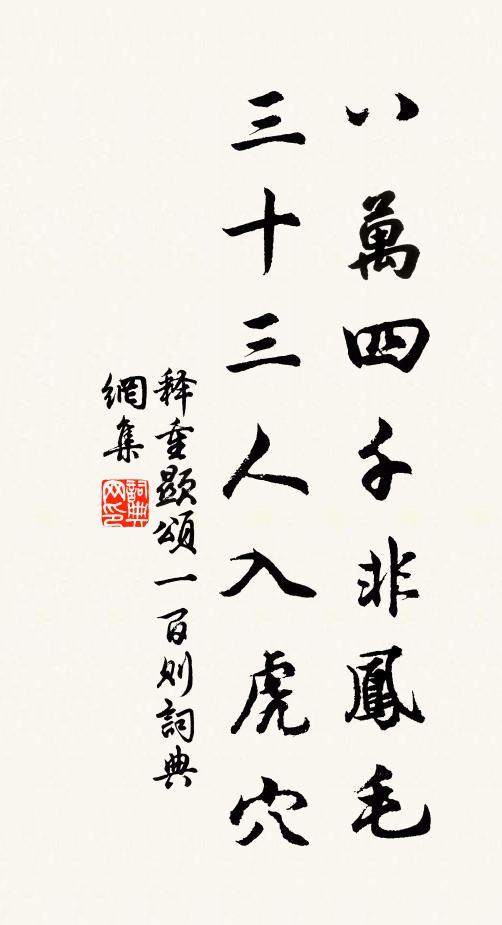 八萬四千非鳳毛
三十三人入虎穴
释重顯頌一百则詞典
網集
詞典網印